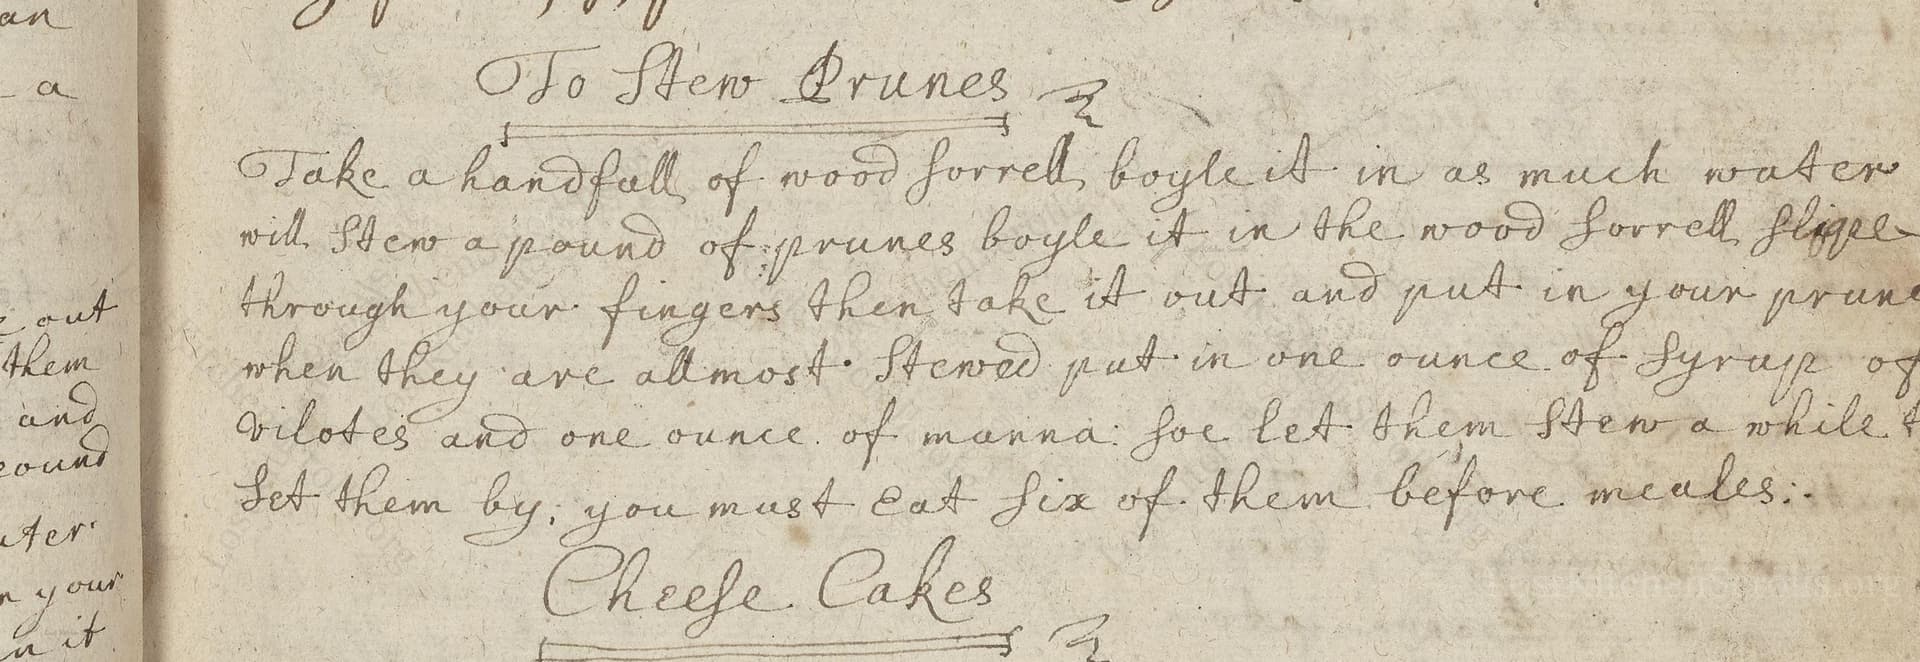 an
a
To Stew Prunes
Take a handfull of wood sorrell boyle it in as much water
will Stew a pound of prunes boyle it in the wood sorrell
through your fingers then take it out and put in your prune
when they are allmost Stewed put in one ounce of Syrup of
vilotes and one ounce of manna: soe let them Stew a while t
Set them by; you must Eat six of them before meales:.
Cheese Cakes
out
them
and
ound
ater
your
it